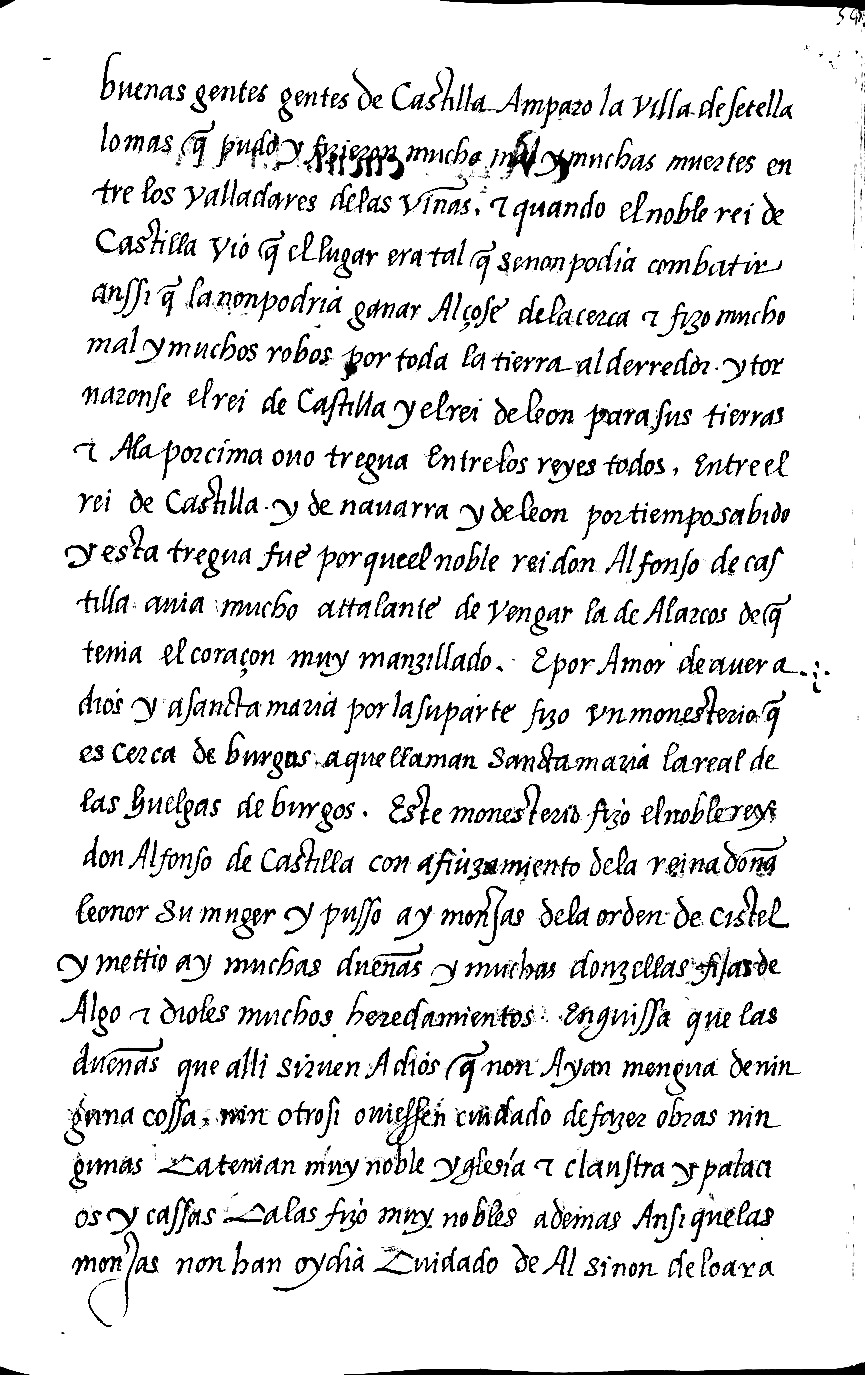 buenas gentes gentes de Castilla Amparo la Villa de setella
lo mas q̃ pudo y fizieron mucho mal y muchas muertes en
tre los valladares de las viñas. τ quando el noble rei de
Castilla vio q̃ el lugar era tal q̃ se non podia combatir
anssi q̃ la non podria ganar Alçose de la cerca τ fizo mucho
mal y muchos robos por toda la tierra al derredor. y tor
naronse el rei de Castilla y el rei de leon para sus tierras
τ Ala por cima ouo tregua Entre los reyes todos, Entre el
rei de Castilla. y de nauarra y de leon por tiempo sabido
y esta tregua fue por que el noble rei don Alfonso de cas
tilla auia mucho attalante de vengar la de Alarcos de q̃
tenia el coraçon muy manzillado. E por Amor de auer a
dios y a sancta maria por la su parte fizo vn monesterio q̃
es cerca de burgos a que llaman Sancta maria la real de
las huelgas de burgos. Este monesterio fizo el noble rey
don Alfonso de Castilla con afiuzamiento de la reina doña
leonor su muger y pusso ay monjas de la orden de cistel
y mettio ay muchas dueñas y muchas donzellas fijas de
Algo τ dioles muchos heredamientos Enguissa que las
dueñas que alli siruen A dios q̃ non Ayan mengua de nin
guna cossa, nin otrosi ouiessen cuidado de fazer obras nin
gunas Ca tenian muy noble yglesia τ claustra y palaci
os y cassas Ca las fizo muy nobles ademas Ansi que las
monjas non han oy dia Cuidado de Al sinon de loar a